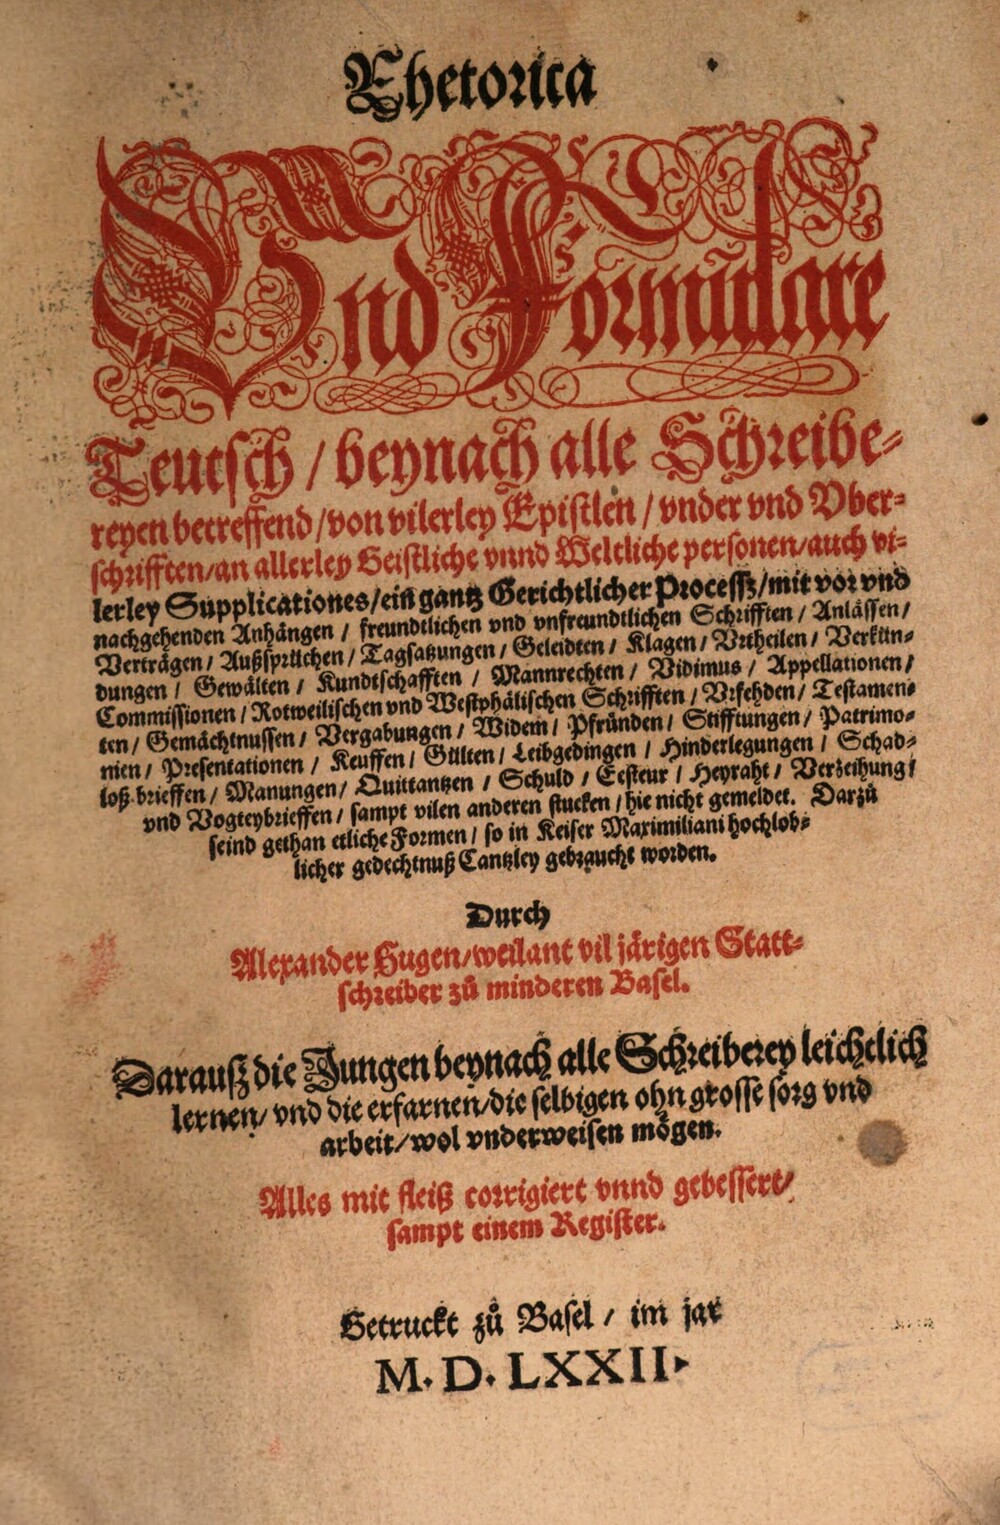 Rhetorica
Vnd Formulare
Teutsch / beynach alle Schreibe⸗
reyen betreffend / von vilerley Epistlen / vnder vnd Vber⸗
schrifften / an allerley Geistliche vnnd Weltliche personen / auch vi⸗
lerley Supplicationes / ein gantz Gerichtlicher Processz / mit vor vnd
nachgehenden Anhängen / freundtlichen vnd vnfreundtlichen Schrifften / Anlässen /
Verträgen / Außsprüchen / Tagsatzungen / Geleidten / Klagen / Vrtheilen / Verkün⸗
dungen / Gewälten / Kundtschafften / Mannrechten / Vidimus / Appellationen /
Commissionen / Rotweilischen vnd Westphälischen Schrifften / Vrfehden / Testamen⸗
ten / Gemächtnussen / Vergabungen / Widem / Pfründen / Stifftungen / Patrimo⸗
nien / Presentationen / Keuffen / Gülten / Leibgedingen / Hinderlegungen / Schad⸗
loß brieffen / Manungen / Quittantzen / Schuld / Eesteur / Heyraht / Verzeihung /
vnd Vogteybrieffen / sampt vilen anderen stucken / hie nicht gemeldet. Darzů
seind gethan etliche Formen / so in Keiser Maximiliani hochlob⸗
licher gedechtnuß Cantzley gebraucht worden.
Durch
Alexander Hugen / weilant vil järigen Statt⸗
schreiber zů minderen Basel.
Daraußz die Jungen beynach alle Schreiberey leichtlich
lernen / vnd die erfarnen / die selbigen ohn grosse sorg vnd
arbeit / wol vnderweisen mögen.
Alles mit fleiß corrigiert vnnd gebessert /
sampt einem Register.
Getruckt zů Basel / im jar
M. D. LXXII.